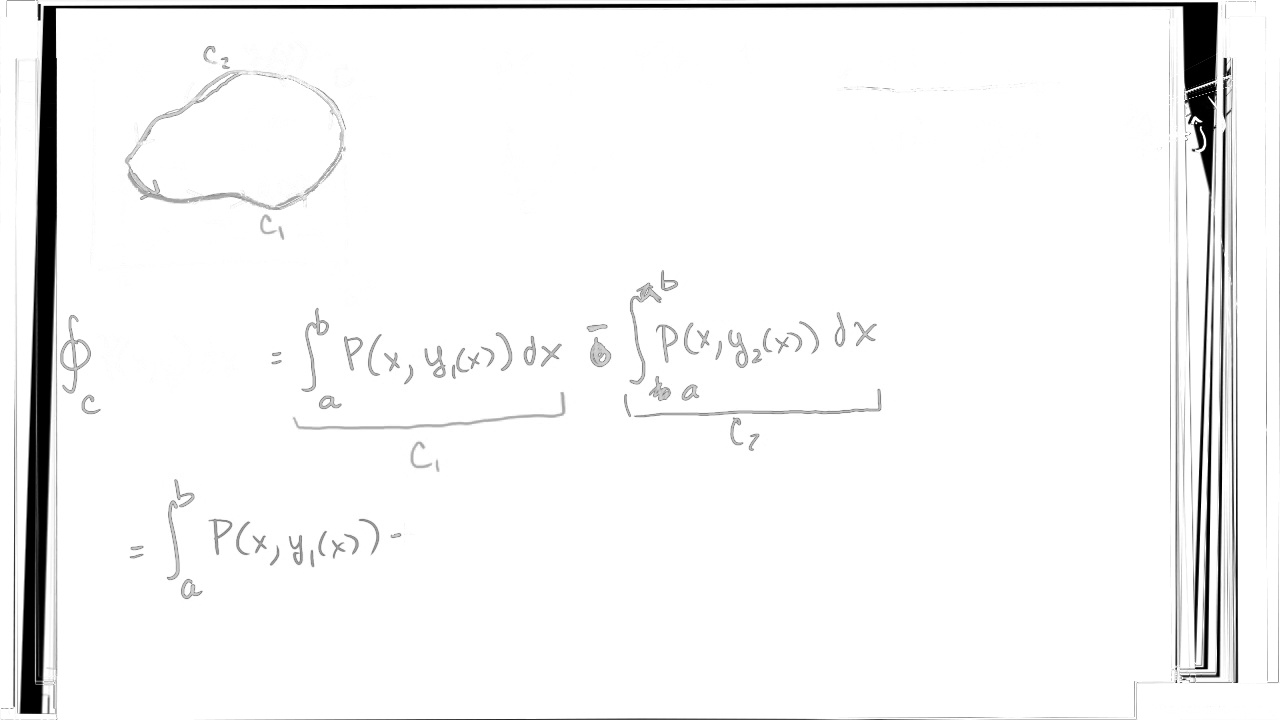 C₂
C₁
∮_C = ∫_a^b P(x, y₁(x)) dx - ∫_a^b P(x, y₂(x)) dx
C₁ C₂
= ∫_a^b P(x, y₁(x)) -